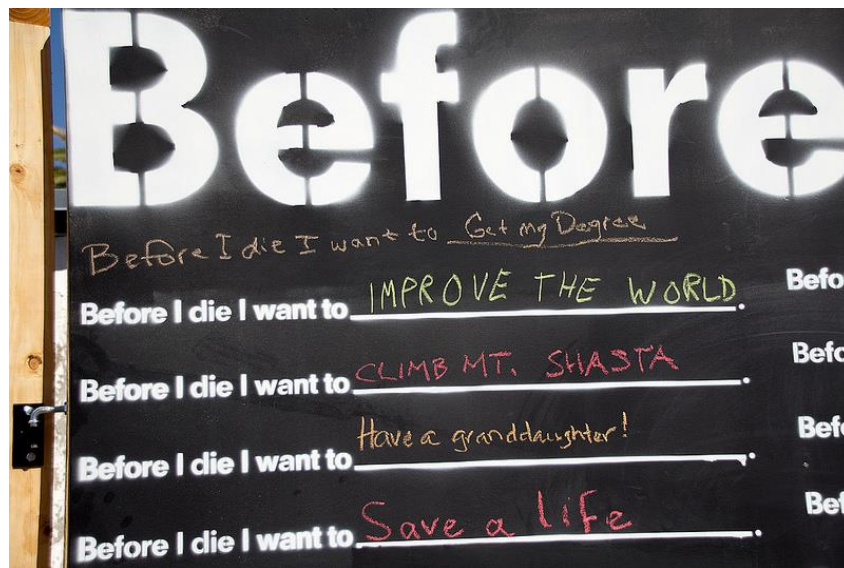 Before
Before I die I want to Get my Degree
Before I die I want to IMPROVE THE WORLD.
Before I die I want to CLIMB MT. SHASTA.
Before I die I want to Have a granddaughter!.
Before I die I want to Save a life.
Befo
Befo
Befo
Bef